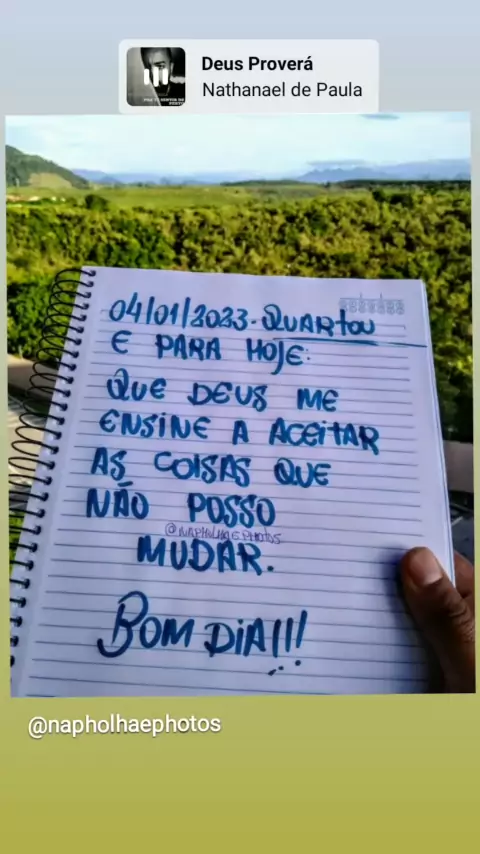 Deus Proverá
Nathanael de Paula
04/01/2023. QUARTOU
E PARA HOJE:
QUE DEUS ME
ENSINE A ACEITAR
AS COISAS QUE
NÃO POSSO
@NAPHOLHAEPHOTOS
MUDAR.
BOM DIA!!!
@napholhaephotos